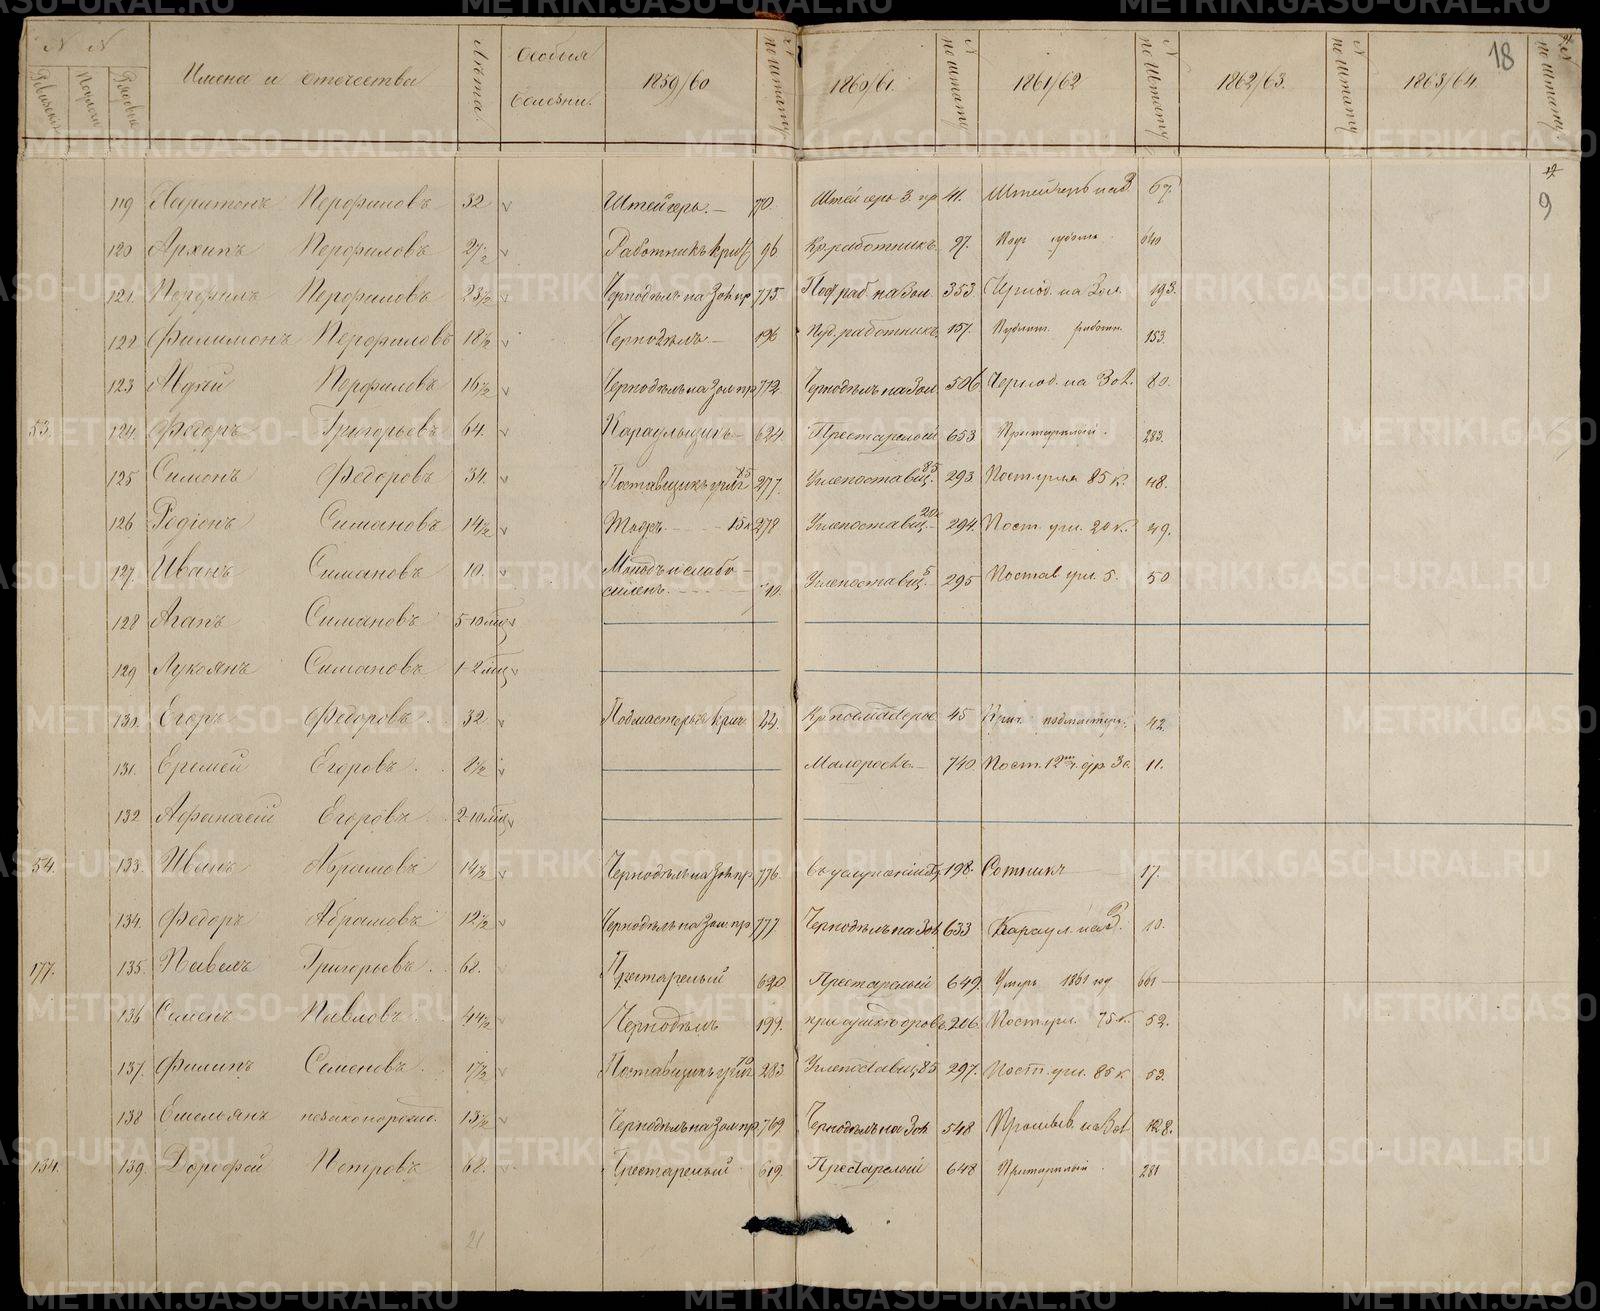 N N Имена и отчества Лѣта Особыя болезни. 1859/60 N по штату 1860/61. N по штату 1861/62 N по штату 1862/63. N по штату 1863/64. N по штату. 18
9
119 Харитонъ Перфиловъ 32 Штейгеръ. 70. Штейгеръ З. пр 41. Штейгеръ на З 67.
120 Архипъ Перфиловъ 27 1/2 Работникъ крич 96 Кр. работникъ 97.
121. Перфилъ Перфиловъ 23 1/2 Чернодѣлъ на Зол. пр 775 Под. раб. на Зол. 353 Чернод. на Зол. 193.
122 Филимонъ Перфиловъ 18 1/2 Чернодѣлъ 196 Пуд. работникъ 157. работн. 153.
123 Перфиловъ 16 1/2 Чернодѣлъ на Зол. пр 772 Чернодѣлъ на Зол. 506 Чернод. на Зол. 80.
53. 124. Федоръ Григорьевъ 64. Караульщикъ 624 Престарелый 653 Престарелый. 283.
125 Симонъ Федоровъ 34. Поставщикъ угля 75 277. Углепоставщ. 85 293 Пост. угля 85 к. 48.
126 Родіонъ Симановъ 14 1/2 Тоже 15 к 278 Углепоставщ. 20к 294. Пост. угл. 20 к. 49.
127. Иванъ Симановъ 10. Молодъ и слабо-
силенъ. 710. Углепоставщ. 5 295 Постав угл. 5. 50
128 Агапъ Симановъ 5-10 мѣс
129 Лукоянъ Симановъ 1-2 мѣс
130. Егоръ Федоровъ. 32. Подмастерье крич. 44. Кр. подмастерье 45 Крич. подмастерь. 42.
131. Еремей Егоровъ. 8 1/2 Малоросъ. 740 Пост. 12 др За. 11.
132 Афанасій Егоровъ. 2-10 мѣс
54. 133. Иванъ Абрамовъ 14 1/2 Чернодѣлъ на Зол. пр. 776. въ услуженіи 198. Сотникъ 17.
134. Федоръ Абрамовъ 12 1/2 Чернодѣлъ на Зол. пр 777 Чернодѣлъ на Зол. 633 Караул. на З. 10.
177. 135. Павелъ Григорьевъ. 68. Престарелый 620 Престарелый 649. Умеръ 1861 год 661
136 Семенъ Павловъ. 44 1/2 Чернодѣлъ 199. при сушкѣ дровъ 206. Пост. угл. 75 к. 52.
137. Филипъ Семеновъ. 17 1/2 Поставщикъ угля 70 283 Углепоставщ. 85 297. Пост. угл. 85 к 53.
138 Емельянъ незаконорожд. 13 1/2 Чернодѣлъ на Зол. пр. 769 Чернодѣлъ на Зол. 548 Промыв. на Зол 128.
134. 139. Дорофей Петровъ 68. Престарелый 619. Престарелый 648 Престарелый. 281
21
METRIKI.GASO-URAL.RU